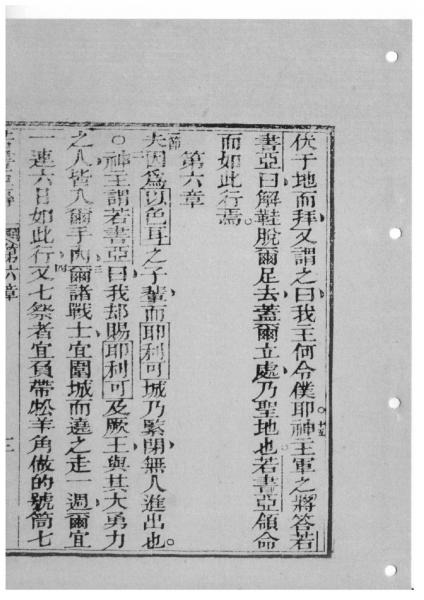 伏于地而拜又謂之曰我主何令僕耶神主軍之將答若
書亞曰解鞋脫爾足去蓋爾立處乃聖地也若書亞領命
而如此行焉
第六章
夫因爲以色耳之子輩而耶利可城乃緊閉無人進出也
○神主謂若書亞曰我却賜耶利可及厥王與其大勇力
之人皆入爾手內爾諸戰士宜圍城而遶之走一週爾宜
一連六日如此行又七祭者宜負帶羝羊角做的號筒七
第六章